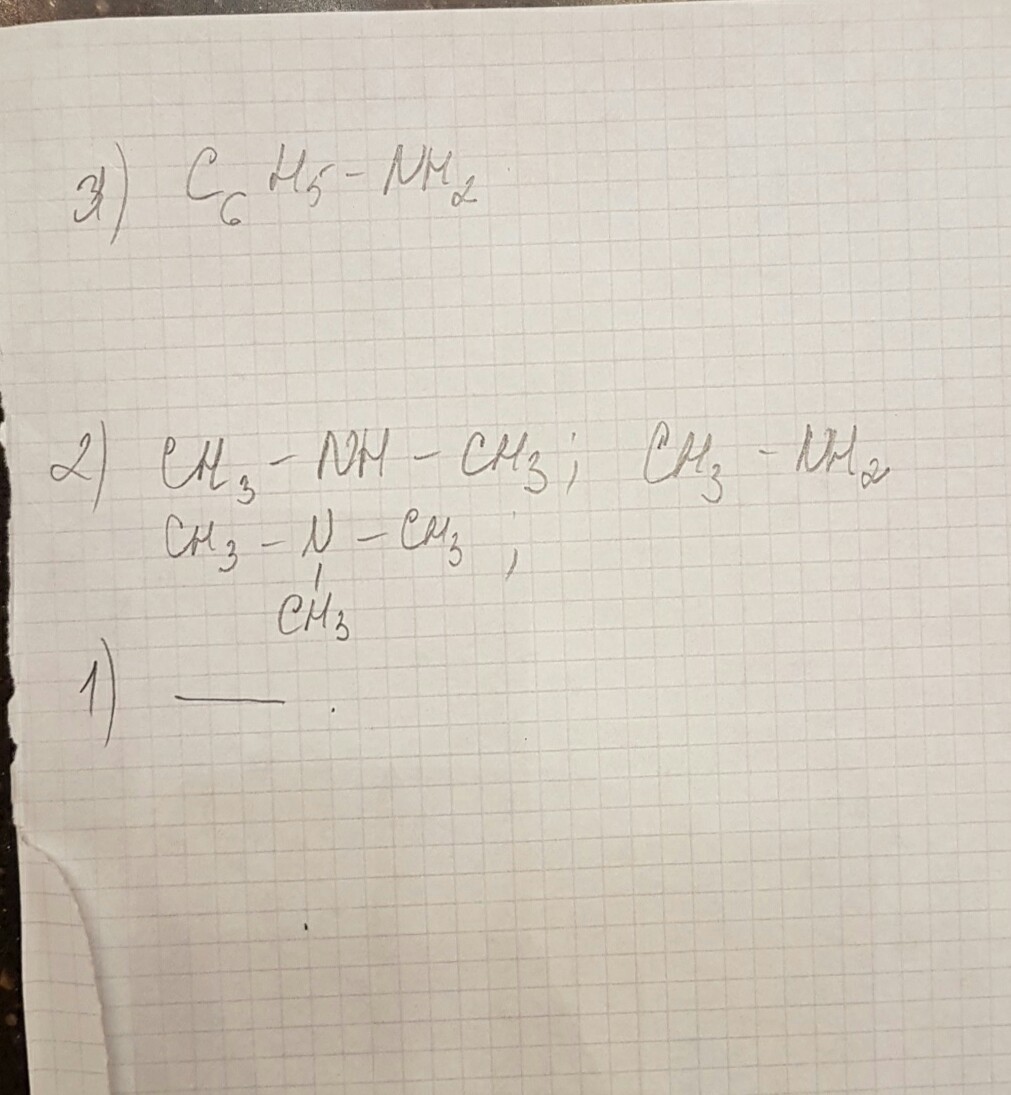 3) C₆H₅-NH₂
2) CH₃-NH-CH₃; CH₃-NH₂
CH₃-N-CH₃;
|
CH₃
1) —.